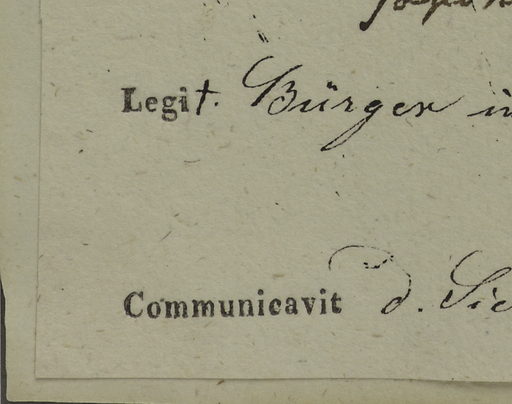 Legit. Bürger in
Communicavit d. Sie